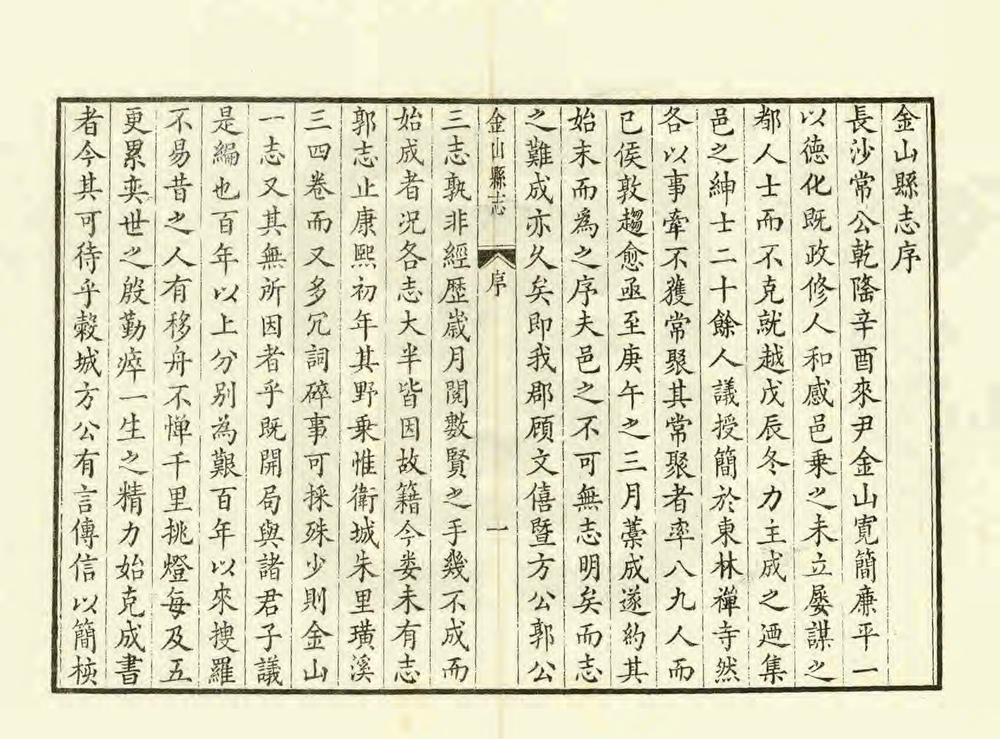 金山縣志序
長沙常公乾隆辛酉來尹金山寬簡廉平一
以德化既政修人和感邑乗之未立屡謀之
都人士而不克就越戊辰冬力主成之迺集
邑之紳士二十餘人議授簡於東林禪寺然
各以事牽不獲常聚其常聚者率八九人而
已侯敦趨愈亟至庚午之三月藁成遂約其
始末而為之序夫邑之不可無志明矣而志
之難成亦久矣即我郡顧文僖暨方公郭公
金山縣志
序
一
三志孰非經歴歲月閱數賢之手幾不成而
始成者況各志大半皆因故籍今婁未有志
郭志止康熙初年其野乗惟衛城朱里璜溪
三四卷而又多冗詞碎事可採殊少則金山
一志又其無所因者乎既開局與諸君子議
是編也百年以上分别為艱百年以來搜羅
不易昔之人有移舟不憚千里挑燈每及五
更累奕世之殷勤瘁一生之精力始克成書
者今其可待乎穀城方公有言傳信以簡核